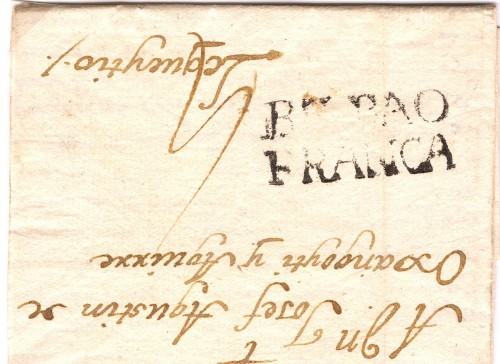 A Dn. Josef Agustin de
Oxangoyti y Aguirre
BILBAO
FRANCA
Lequeytio